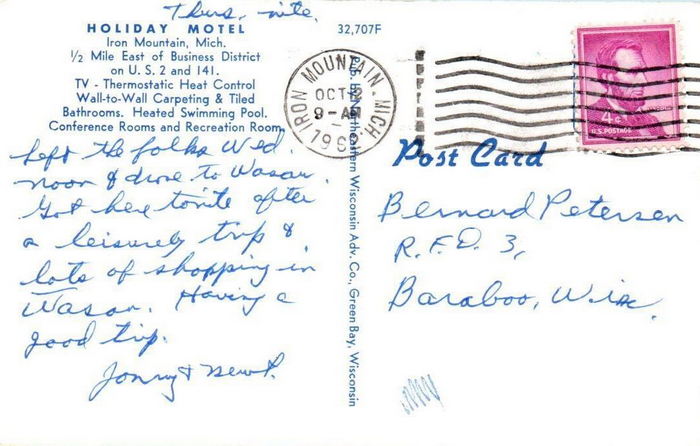 Thurs. nite.
HOLIDAY MOTEL
Iron Mountain, Mich.
1/2 Mile East of Business District
on U. S. 2 and 141.
TV - Thermostatic Heat Control
Wall-to-Wall Carpeting & Tiled
Bathrooms. Heated Swimming Pool.
Conference Rooms and Recreation Room
Left the folks Wed.
noon & drove to Wasau.
Got here tonite after
a leisurely trip &
lots of shopping in
Wasau. Having a
good trip.
& Newt.
32,707F
Pub. by Northeastern Wisconsin Adv. Co., Green Bay, Wisconsin
IRON MOUNTAIN, MICH.
OCT
9-AM
196
4¢
LINCOLN
U.S. POSTAGE
Post Card
Bernard Petersen
R.F.D. 3,
Baraboo, Wis.